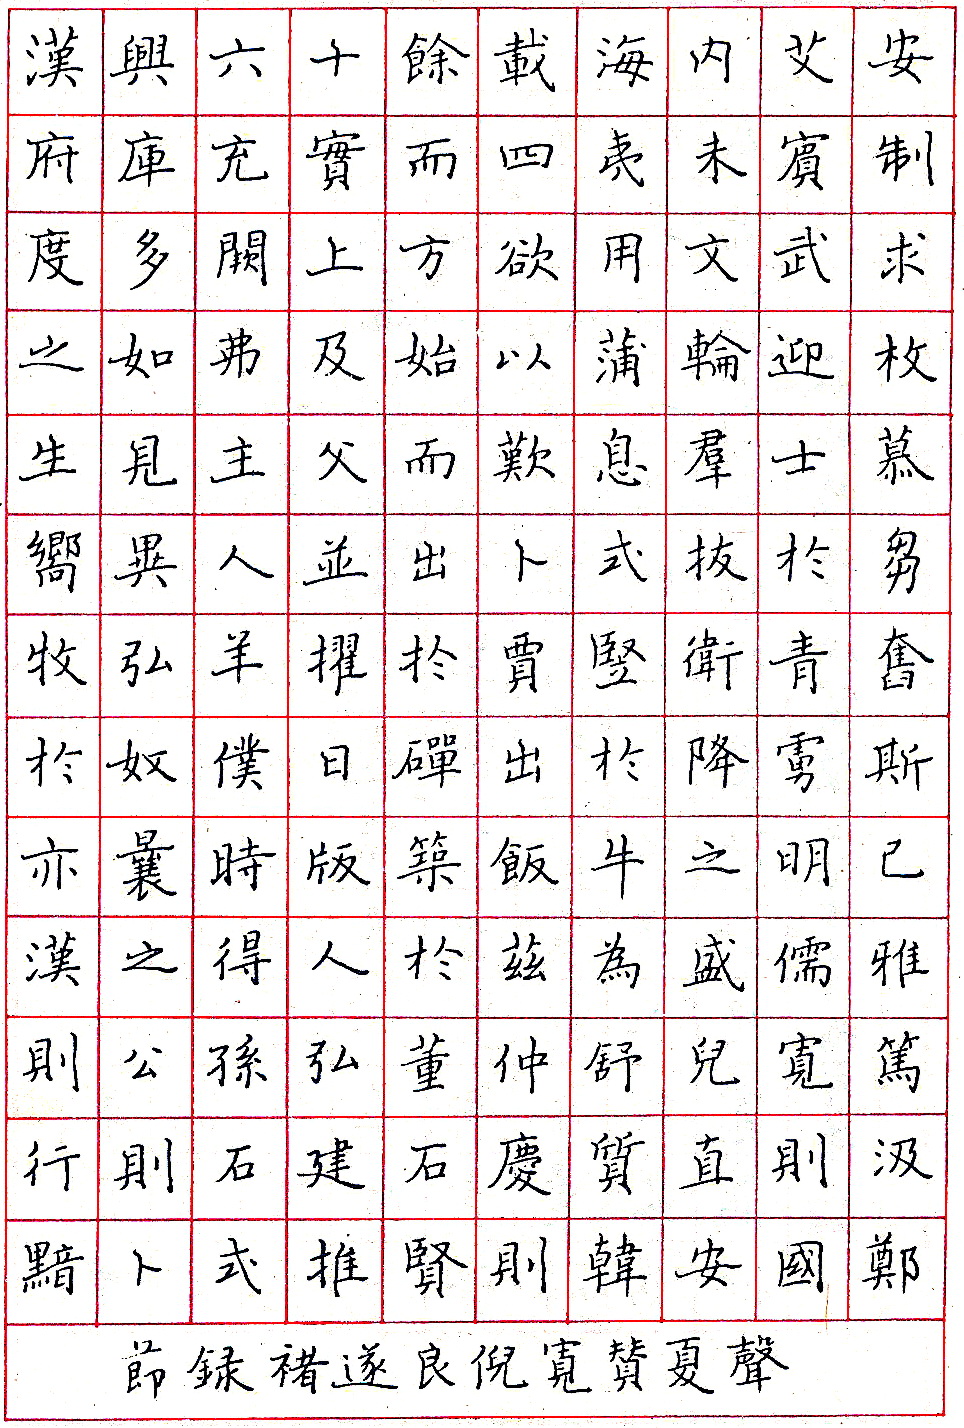 漢興六十餘載海内艾安
府庫充實而四夷未賓制
度多闕上方欲用文武求
之如弗及始以蒲輪迎枚
生見主父而歎息羣士慕
嚮異人並出卜式拔於芻
牧弘羊擢於賈豎衛青奮
於奴僕日磾出於降虜斯
亦曩時版築飯牛之明已
漢之得人於茲為盛儒雅
則公孫弘董仲舒兒寬篤
行則石建石慶質直則汲
黯卜式推賢則韓安國鄭
節録褚遂良倪寬贊夏聲